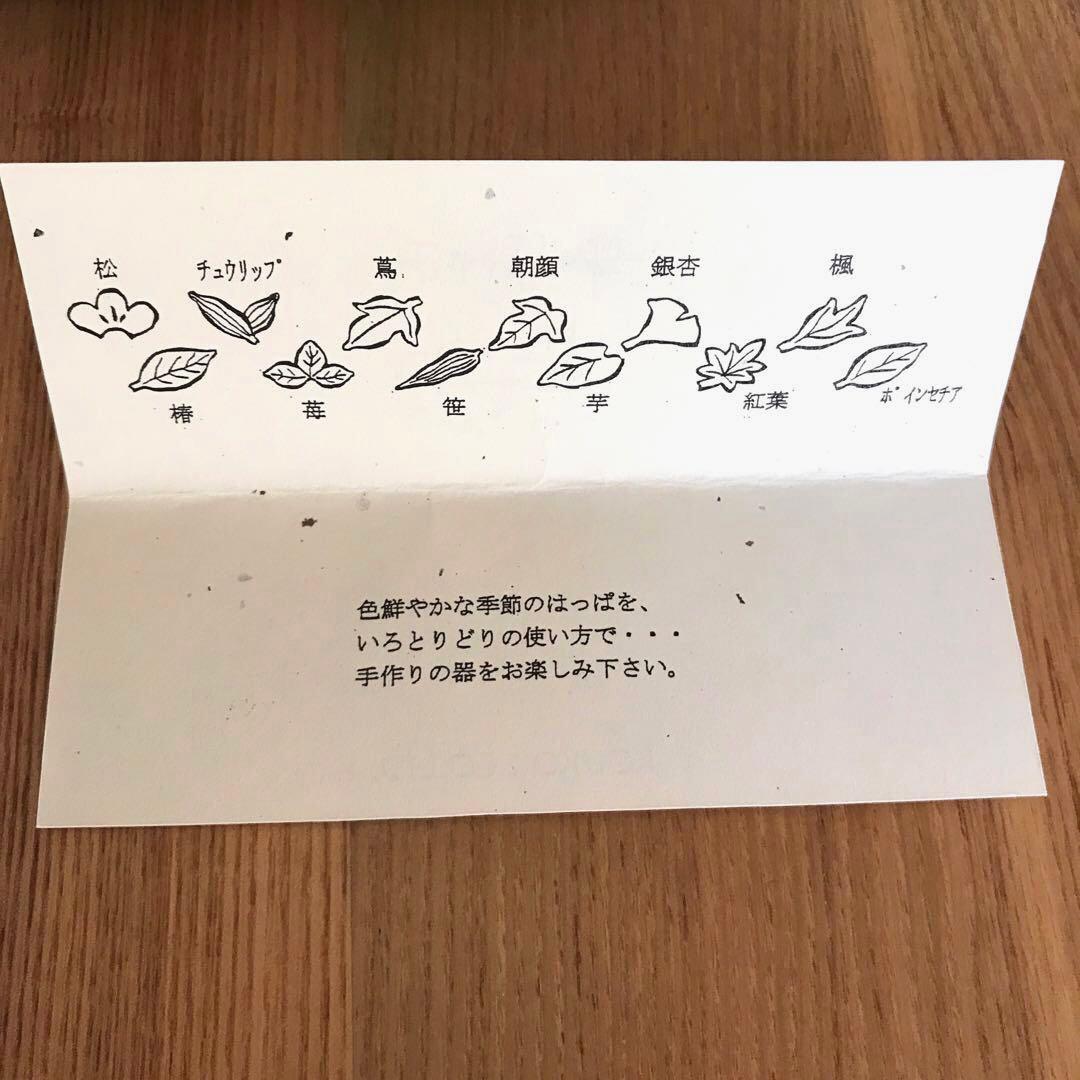 松 ﾁｭｳﾘｯﾌﾟ 蔦 朝顔 銀杏 楓
椿 苺 笹 芋 紅葉 ﾎﾟｲﾝｾﾁｱ
色鮮やかな季節のはっぱを、
いろとりどりの使い方で・・・
手作りの器をお楽しみ下さい。